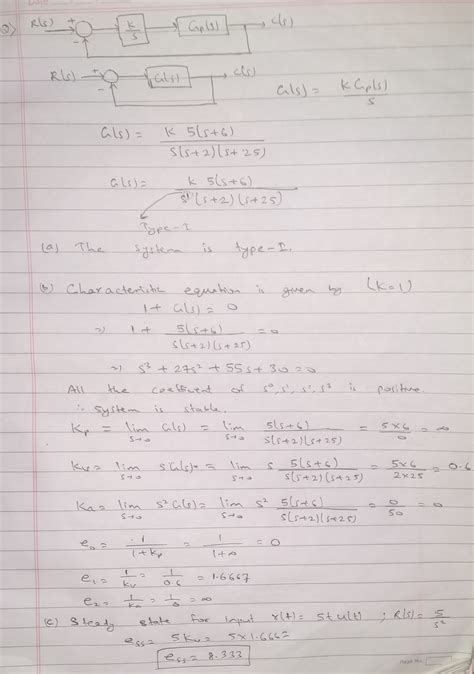 Q)
R(s) + - K/s Gp(s) C(s)
R(s) + - G(s) C(s)
G(s) = K Gp(s) / s
G(s) = K 5(s+6) / s(s+2)(s+25)
G(s) = K 5(s+6) / s¹(s+2)(s+25)
Type-I
(a) The system is type-I.
(b) Characteristic equation is given by (K=1)
1 + G(s) = 0
⇒ 1 + 5(s+6) / s(s+2)(s+25) = 0
⇒ s³ + 27s² + 55s + 30 = 0
All the coefficient of s⁰, s¹, s², s³ is positive.
∴ System is stable.
Kp = lim s→0 G(s) = lim s→0 5(s+6) / s(s+2)(s+25) = 5×6 / 0 = ∞
Kv = lim s→0 s G(s) = lim s→0 s 5(s+6) / s(s+2)(s+25) = 5×6 / 2×25 = 0.6
Ka = lim s→0 s² G(s) = lim s→0 s² 5(s+6) / s(s+2)(s+25) = 0 / 50 = 0
e₀ = 1 / 1+Kp = 1 / 1+∞ = 0
e₁ = 1 / Kv = 1 / 0.6 = 1.6667
e₂ = 1 / Ka = 1 / 0 = ∞
(c) Steady state for input r(t) = 5t u(t) ; R(s) = 5 / s²
ess = 5 Kv = 5 × 1.6667
ess = 8.333